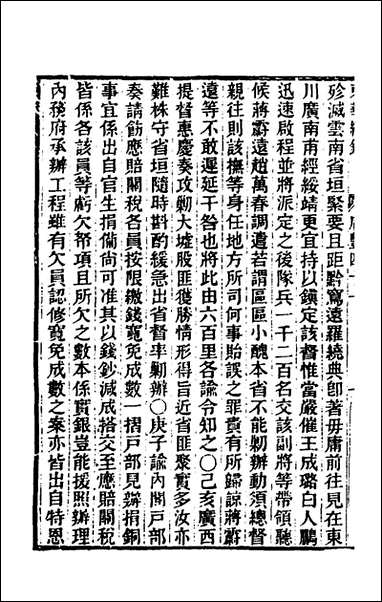 殄滅雲南省垣緊要且距黔寫遠羅繞典卽著毋庸前往見在東
川廣南甫經綏靖更宜持以鎭定該督惟當嚴催王成璐白人鵬
迅速啟程並將派定之後隊兵一千二百名交該副將等帶領聽
候蔣霨遠趙萬春調遣若謂區區小醜本省不能勦辦動須總督
親往則該撫等身任地方所司何事貽誤之罪責有所歸諒蔣霨
遠等不敢遲延干咎也將此由六百里各諭令知之〇己亥廣西
提督惠慶奏攻勦大墟股匪獲勝情形得旨近省匪聚實多汝亦
難株守省垣隨時斟酌緩急出省督率勦辦〇庚子諭內閣戶部
奏請飭應賠關稅各員按限繳錢寬免成數一摺戶部見辦捐銅
事宜係出自官生捐備尚可准其以錢鈔減成搭交至應賠關稅
皆係各該員等虧欠帑項且所欠之數本係實銀豈能援照辦理
內務府承辦工程雖有欠員認修寬免成數之案亦皆出自特恩